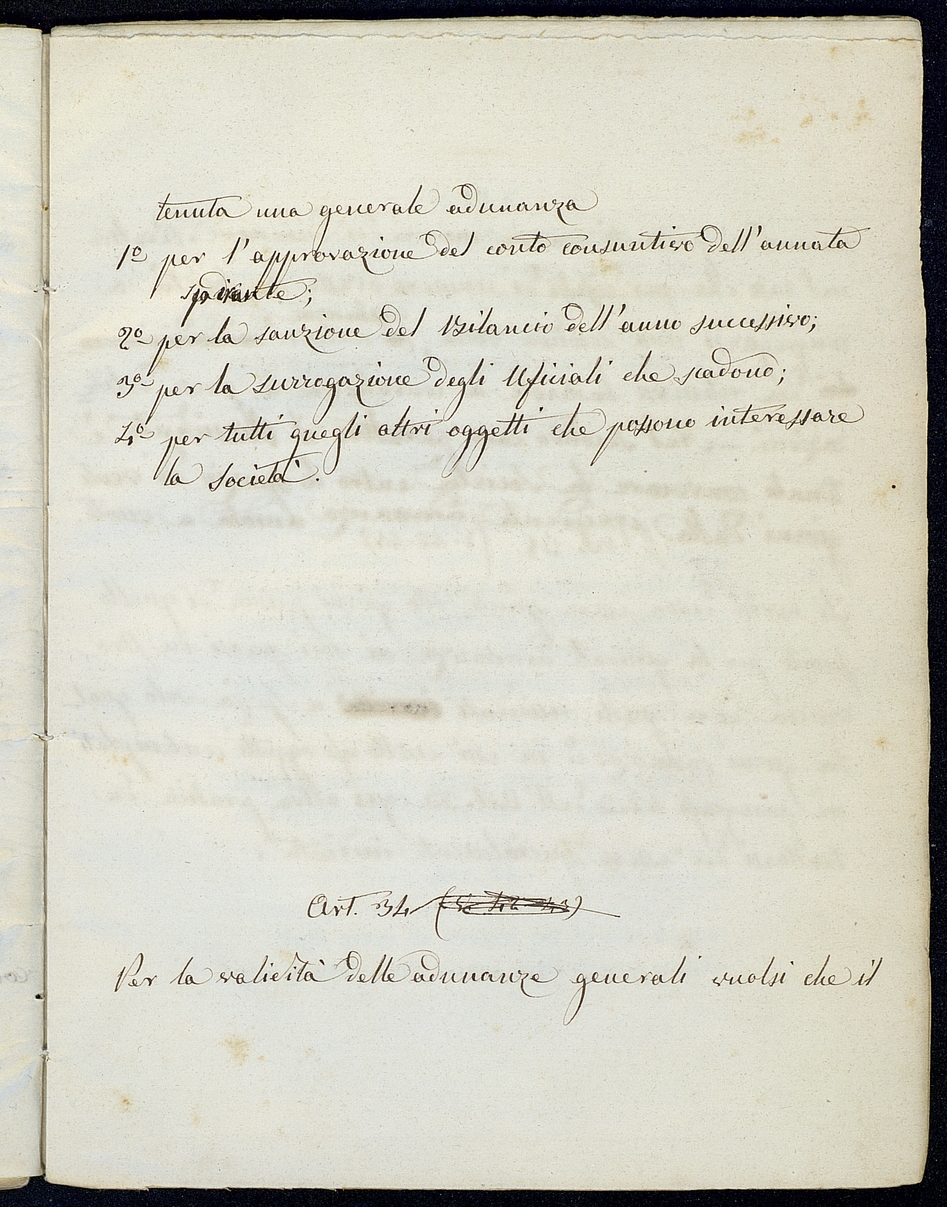 tenuta una generale adunanza
1º per l'approvazione del conto consuntivo dell'annata
spirante;
2º per la sanzione del Bilancio dell'anno successivo;
3º per la surrogazione degli Uficiali che scadono;
4º per tutti quegli altri oggetti che possono interessare
la società.
Art. 34
Per la validità delle adunanze generali vuolsi che il